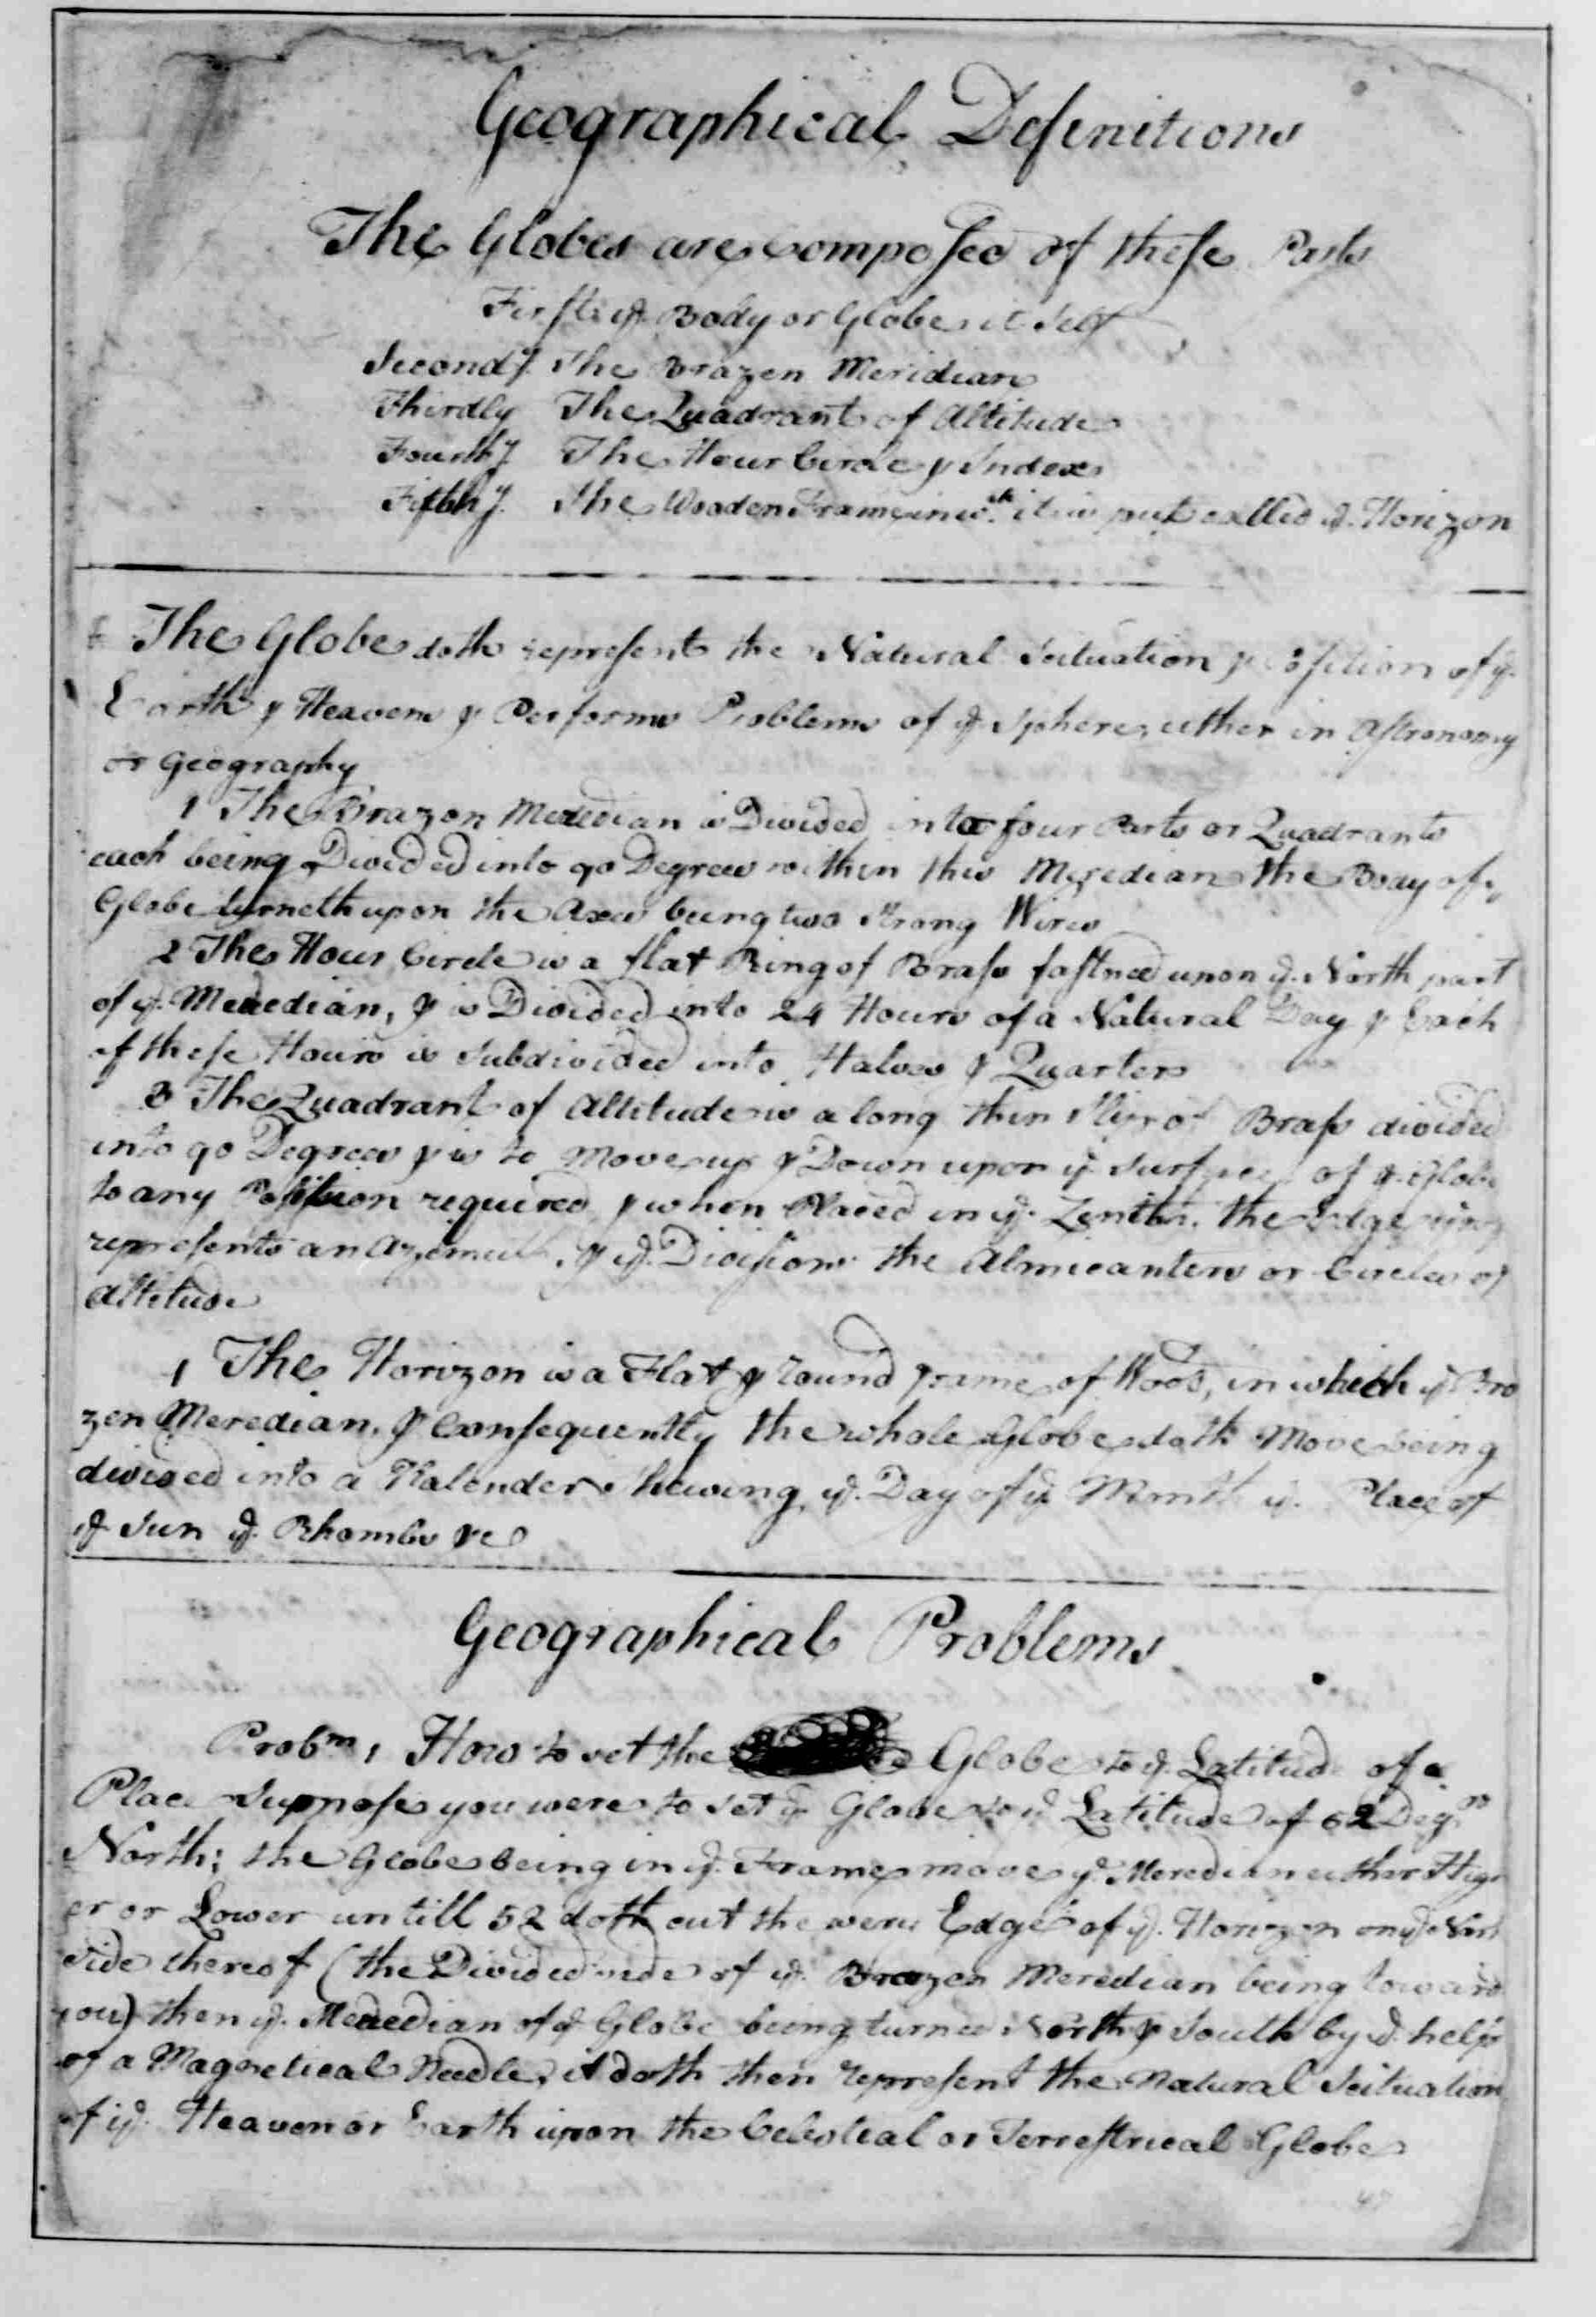 Geographical Definitions
The Globes are composed of these Parts
First ye. Body or Globe it Self
Secondy. The Brazen Meridian
Thirdly The Quadrant of Altitude
Fourthy. The Hour Circle & Index
Fifthly. The Wooden Frame in wch. it is put called ye. Horizon
The Globe doth represent the Natural Scituation & Position of ye.
Earth & Heavens & Performs Problems of ye. Sphere, either in Astronomy
or Geography
1 The Brazen Meredian is Divided into four Parts or Quadrants
each being Divided into 90 Degrees within this Meredian the Body of ye
Globe turneth upon the Axes being two Strong Wires
2 The Hour Circle is a flat Ring of Brass fastned upon ye. North part
of ye. Meredian, & is Divided into 24 Hours of a Natural Day & Each
of these Hours is Subdivided into Halves & Quarters
3 The Quadrant of Altitude is a long thin Slip of Brass divided
into 90 Degrees & is to Move up & Down upon ye. Surface of ye. Globe
to any Position required & when Placed in ye. Zenith. the Edge
represents an Azemuth. & ye. Divisions the Almicanters or Circles of
Altitude
1 The Horizon is a Flat & round frame of Wood, in which ye. Bra
zen Meredian. & Consequently the whole Globe doth Move being
divided into a Kalender Shewing ye. Day of ye. Month ye. Place of
ye. Sun ye. Rhombs &c
Geographical Problems
Probm. 1 How to set the Globe to ye. Latitude of a
Place Suppose you were to Set ye. Globe to ye. Latitude of 52 Degrs
North; the Globe being in ye. Frame move ye. Meredian either High
er or Lower untill 52 doth cut the very Edge of ye. Horizon on ye. North
side thereof (the Divided side of ye. Brazen Meredian being toward
you) then ye. Meredian of ye Globe being turned North & South by ye. help
of a Magnetical Needle, it doth then represent the Natural Scituation
of ye. Heaven or Earth upon the Celestial or Terrestrical Globe